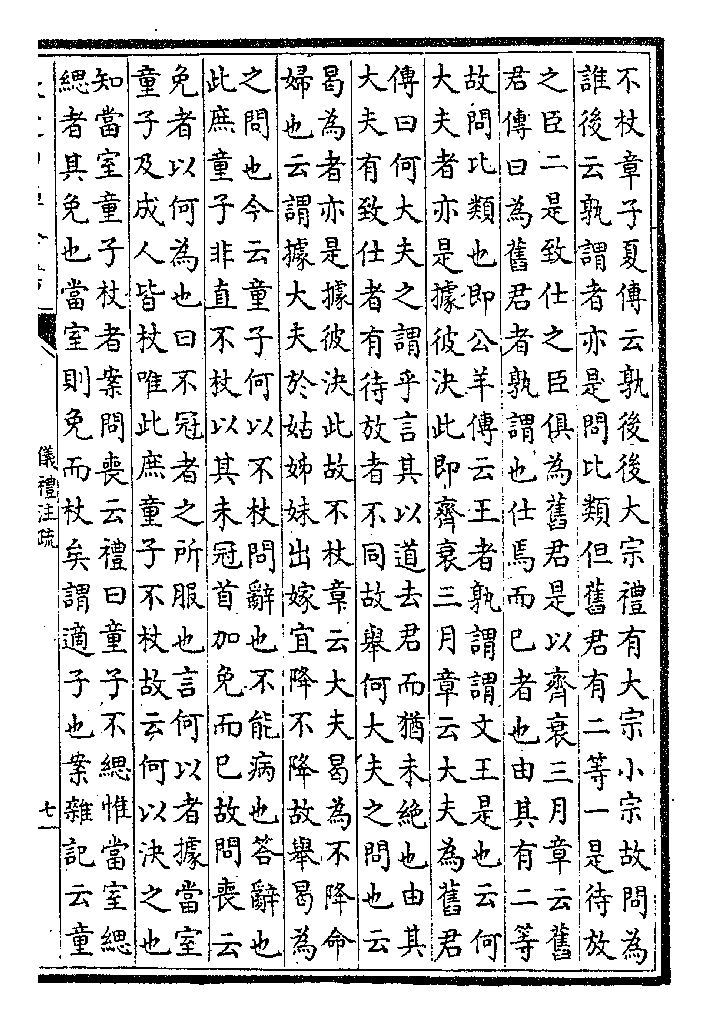 不杖章子夏傳云孰後後大宗禮有大宗小宗故問為
誰後云孰謂者亦是問比類但舊君有二等一是待放
之臣二是致仕之臣俱為舊君是以齊衰三月章云舊
君傳曰為舊君者孰謂也仕焉而已者也由其有二等
故問比類也即公羊傳云王者孰謂謂文王是也云何
大夫者亦是據彼決此即齊衰三月章云大夫為舊君
傳曰何大夫之謂乎言其以道去君而猶未絶也由其
大夫有致仕者有待放者不同故舉何大夫之問也云
曷為者亦是據彼決此故不杖章云大夫曷為不降命
婦也云謂據大夫於姑姊妹出嫁宜降不降故舉曷為
之問也今云童子何以不杖問辭也不能病也答辭也
此庶童子非直不杖以其未冠首加免而已故問喪云
免者以何為也曰不冠者之所服也言何以者據當室
童子及成人皆杖唯此庶童子不杖故云何以決之也
知當室童子杖者案問喪云禮曰童子不緦惟當室緦
緦者其免也當室則免而杖矣謂適子也案雜記云童
儀禮注疏
七